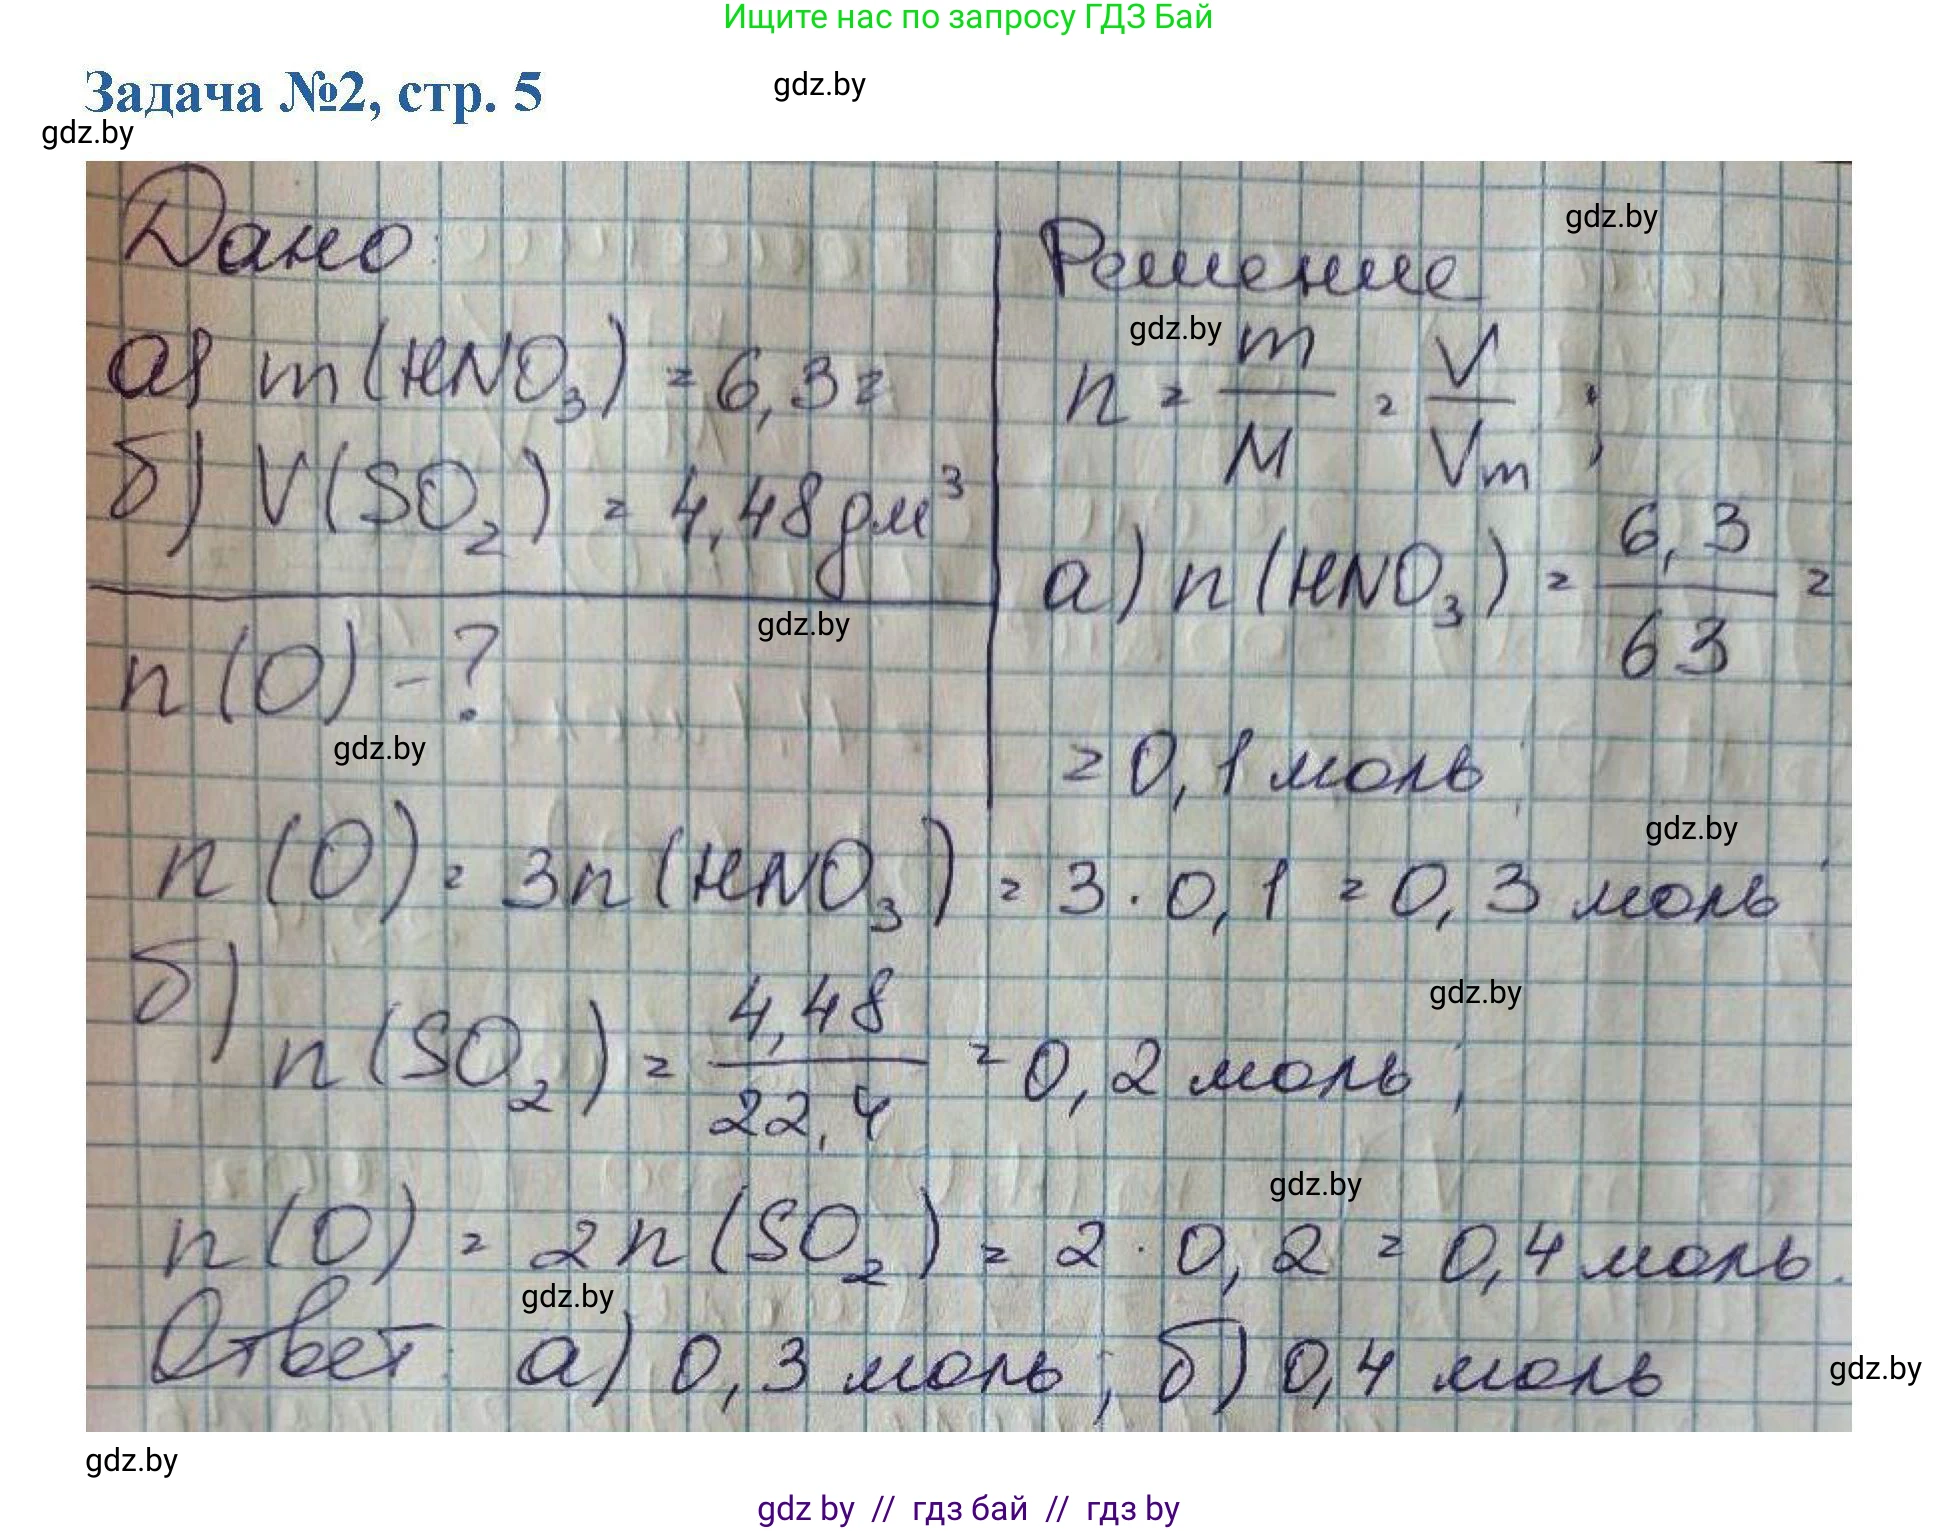 Ищите нас по запросу ГДЗ Бай
Задача №2, стр. 5
gdz.by
gdz.by
Дано:
gdz.by
Решение
а) m(HNO₃) = 6,3 г
gdz.by
n = m/M = V/Vm ;
б) V(SO₂) = 4,48 дм³
а) n(HNO₃) = 6,3/63 =
gdz.by
n(O) - ?
gdz.by
= 0,1 моль;
gdz.by
n(O) = 3n(HNO₃) = 3 · 0,1 = 0,3 моль;
б)
gdz.by
n(SO₂) = 4,48/22,4 = 0,2 моль;
gdz.by
n(O) = 2n(SO₂) = 2 · 0,2 = 0,4 моль.
gdz.by
Ответ: а) 0,3 моль; б) 0,4 моль
gdz.by
gdz.by
gdz by // гдз бай // гдз by